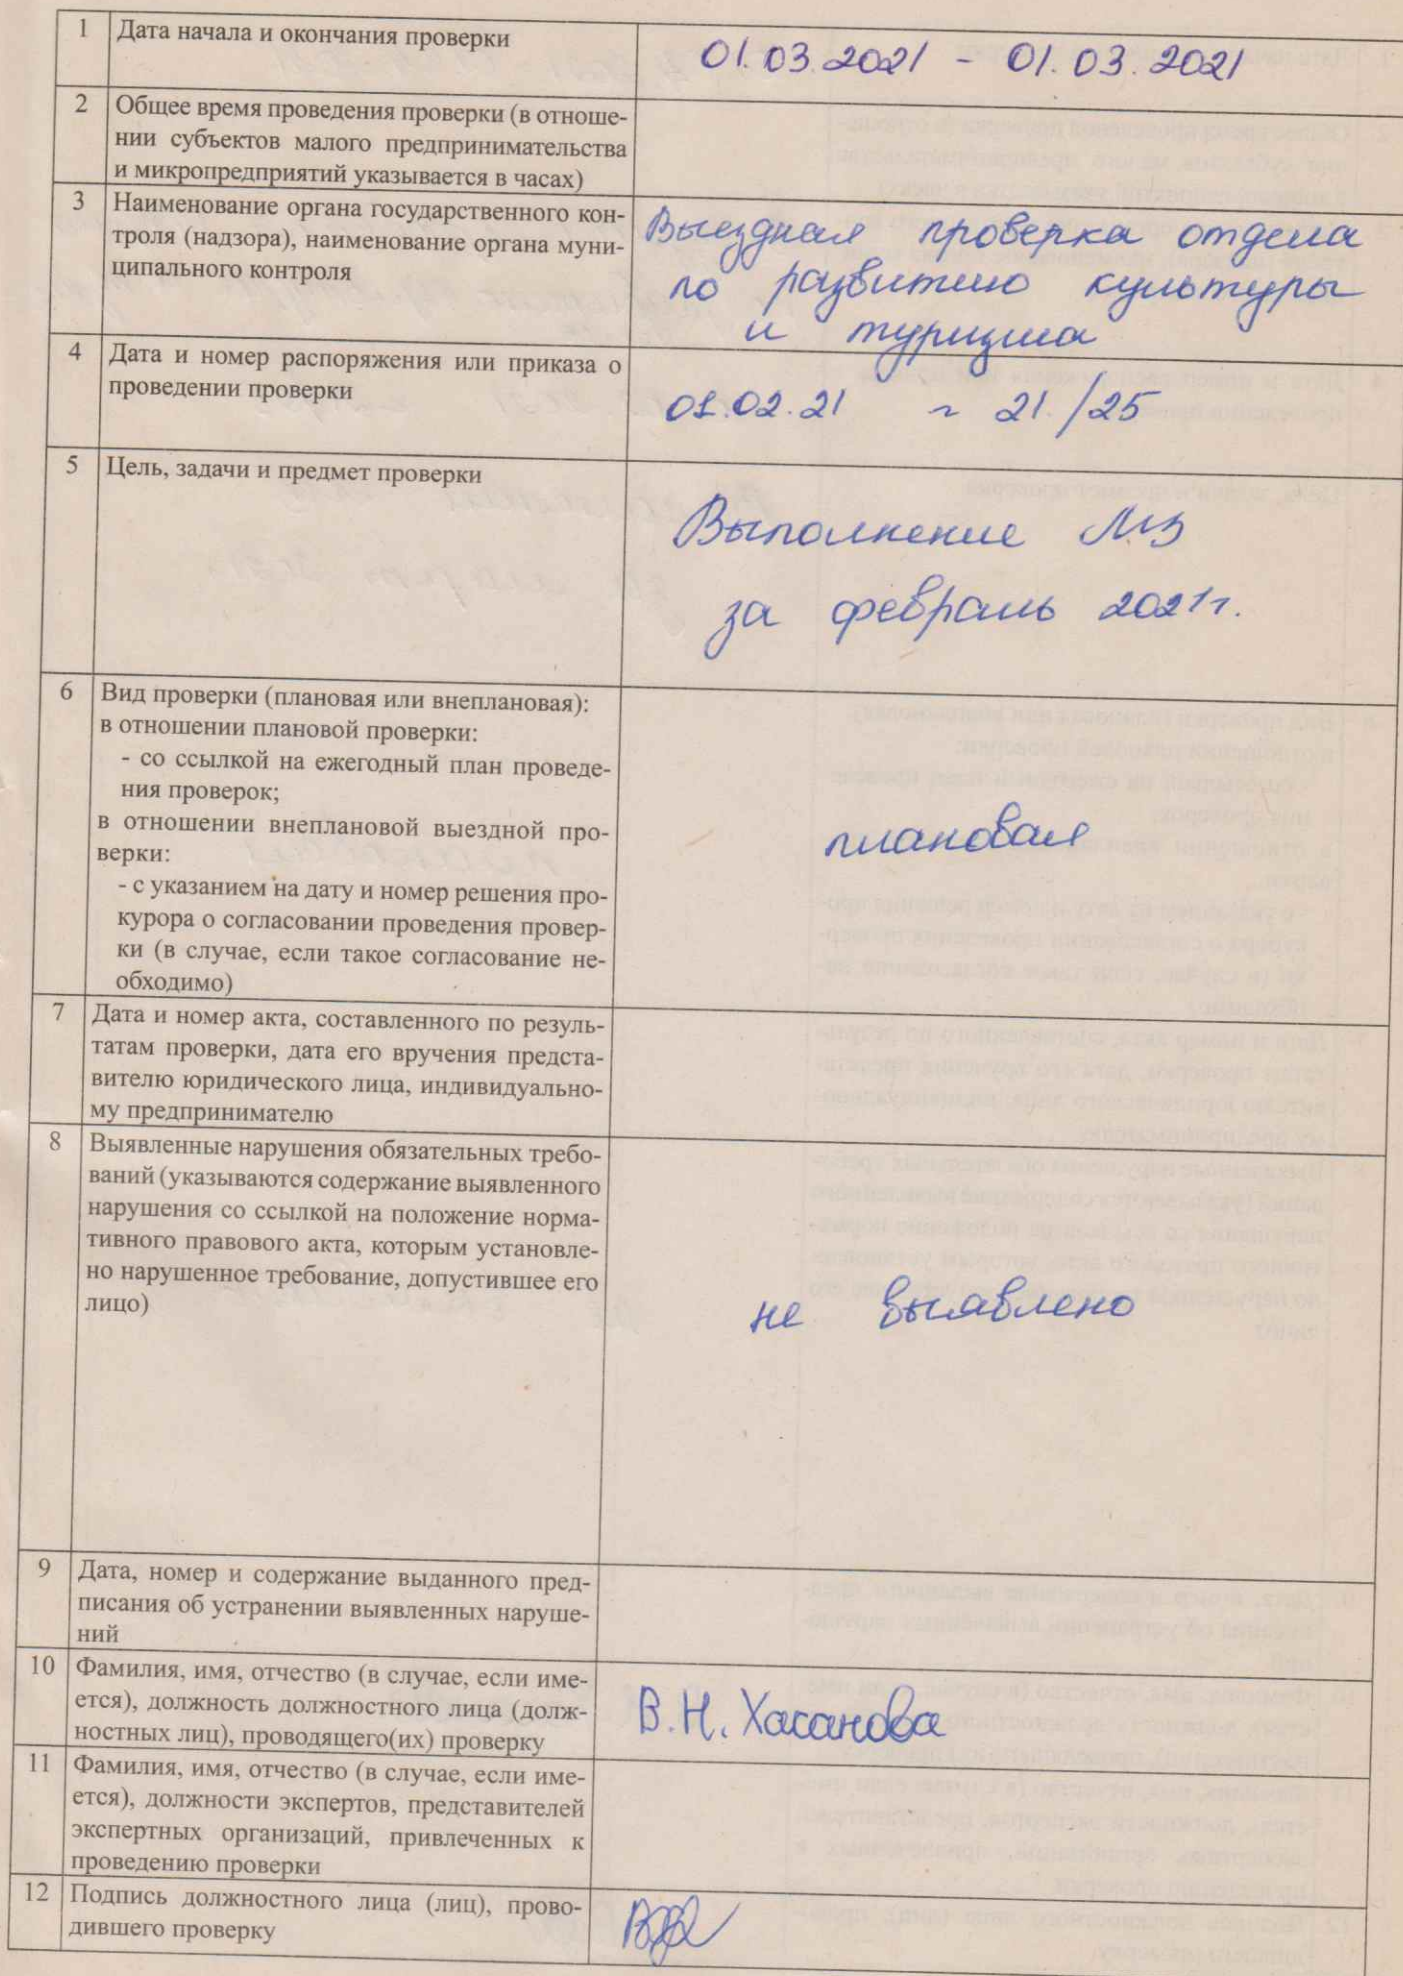 1 Дата начала и окончания проверки
01.03.2021 - 01.03.2021
2 Общее время проведения проверки (в отноше-
нии субъектов малого предпринимательства
и микропредприятий указывается в часах)
3 Наименование органа государственного кон-
троля (надзора), наименование органа муни-
ципального контроля
Выездная проверка отдела
по развитию культуры
и туризма
4 Дата и номер распоряжения или приказа о
проведении проверки
01.02.21 21/25
5 Цель, задачи и предмет проверки
Выполнение МЗ
за февраль 2021г.
6 Вид проверки (плановая или внеплановая):
в отношении плановой проверки:
- со ссылкой на ежегодный план проведе-
ния проверок;
в отношении внеплановой выездной про-
верки:
- с указанием на дату и номер решения про-
курора о согласовании проведения провер-
ки (в случае, если такое согласование не-
обходимо)
плановая
7 Дата и номер акта, составленного по резуль-
татам проверки, дата его вручения предста-
вителю юридического лица, индивидуально-
му предпринимателю
8 Выявленные нарушения обязательных требо-
ваний (указываются содержание выявленного
нарушения со ссылкой на положение норма-
тивного правового акта, которым установле-
но нарушенное требование, допустившее его
лицо)
не выявлено
9 Дата, номер и содержание выданного пред-
писания об устранении выявленных наруше-
ний
10 Фамилия, имя, отчество (в случае, если име-
ется), должность должностного лица (долж-
ностных лиц), проводящего(их) проверку
В.Н. Хасанова
11 Фамилия, имя, отчество (в случае, если име-
ется), должности экспертов, представителей
экспертных организаций, привлеченных к
проведению проверки
12 Подпись должностного лица (лиц), прово-
дившего проверку